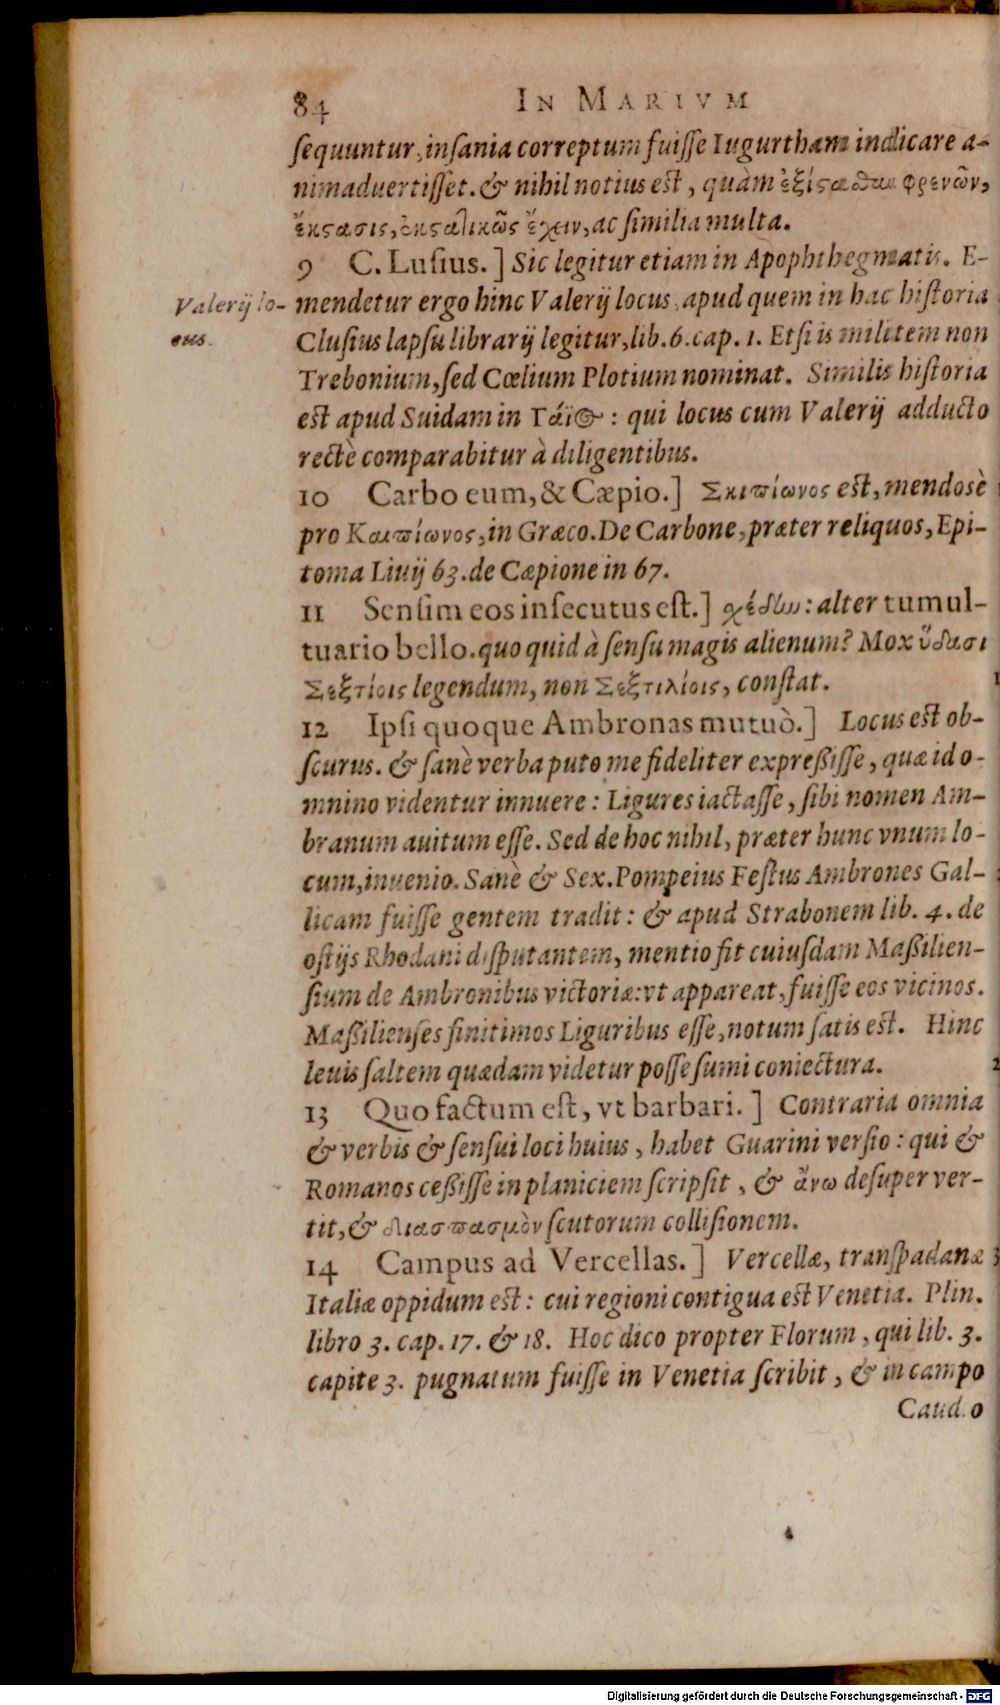 84 IN MARIVM
ſequuntur, inſania correptum fuiſſe Iugurtham indicare a-
nimaduertiſſet. & nihil notius est, quàm ἐξίςαϑαι φρενῶν,
ἔκςασις, ἐκςατικῶς ἔχειν, ac ſimilia multa.
9 C. Luſius.] Sic legitur etiam in Apophthegmatis. E-
Valerij lo-
cus.
mendetur ergo hinc Valerij locus, apud quem in hac hiſtoria
Cluſius lapſu librarij legitur, lib. 6. cap. 1. Etſi is militem non
Trebonium, ſed Cœlium Plotium nominat. Similis hiſtoria
est apud Suidam in Γάϊος : qui locus cum Valerij adducto
rectè comparabitur à diligentibus.
10 Carbo eum, & Cæpio.] Σκιπίωνος est, mendosè
pro Καιπίωνος, in Græco. De Carbone, præter reliquos, Epi-
toma Liuij 63. de Cæpione in 67.
11 Senſim eos inſecutus eſt.] σχέδην : alter tumul-
tuario bello. quo quid à ſenſu magis alienum? Mox ὕδασι
Σεξτίοις legendum, non Σεξτιλίοις, conſtat.
12 Ipſi quoque Ambronas mutuò.] Locus est ob-
ſcurus. & ſanè verba puto me fideliter expreßiſſe, quæ id o-
mnino videntur innuere : Ligures iactaſſe, ſibi nomen Am-
branum auitum eſſe. Sed de hoc nihil, præter hunc vnum lo-
cum, inuenio. Sanè & Sex. Pompeius Feſtus Ambrones Gal-
licam fuiſſe gentem tradit : & apud Strabonem lib. 4. de
oſtijs Rhodani diſputantem, mentio fit cuiuſdam Maßilien-
ſium de Ambronibus victoriæ: vt appareat, fuiſſe eos vicinos.
Maßilienſes finitimos Liguribus eſſe, notum ſatis est. Hinc
leuis ſaltem quædam videtur poſſe ſumi coniectura.
13 Quo factum eſt, vt barbari.] Contraria omnia
& verbis & ſenſui loci huius, habet Guarini verſio : qui &
Romanos ceßiſſe in planiciem ſcripſit, & ἄνω deſuper ver-
tit, & διασπασμὸν ſcutorum colliſionem.
14 Campus ad Vercellas.] Vercellæ, tranſpadanæ
Italiæ oppidum est : cui regioni contigua est Venetia. Plin.
libro 3. cap. 17. & 18. Hoc dico propter Florum, qui lib. 3.
capite 3. pugnatum fuiſſe in Venetia ſcribit, & in campo
Caud.o
Digitalisierung gefördert durch die Deutsche Forschungsgemeinschaft - DFG